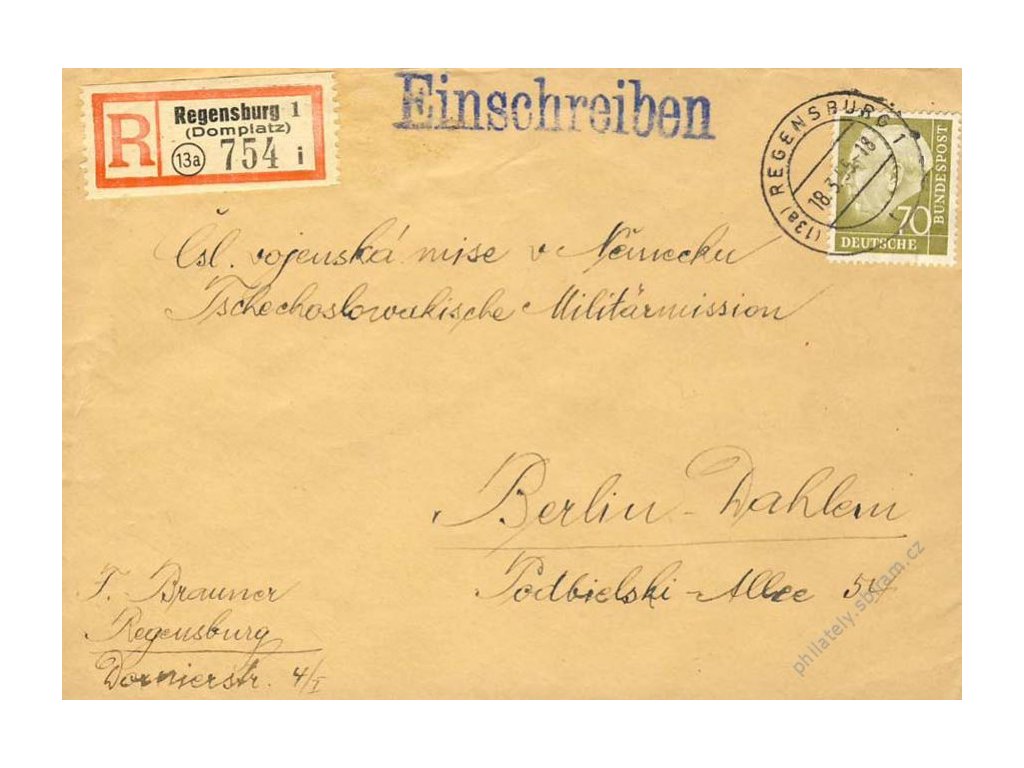 Einschreiben
R
Regensburg 1
(Domplatz)
13a 754 i
(13a) REGENSBURG 1
18.3. -18
70
DEUTSCHE
BUNDESPOST
Čsl. vojenská mise v Německu
Tschechoslowakische Militärmission
Berlin-Dahlem
Podbielski-Allee
F. Brauner
Regensburg
Dornierstr. 4/I
philately.sbiram.cz